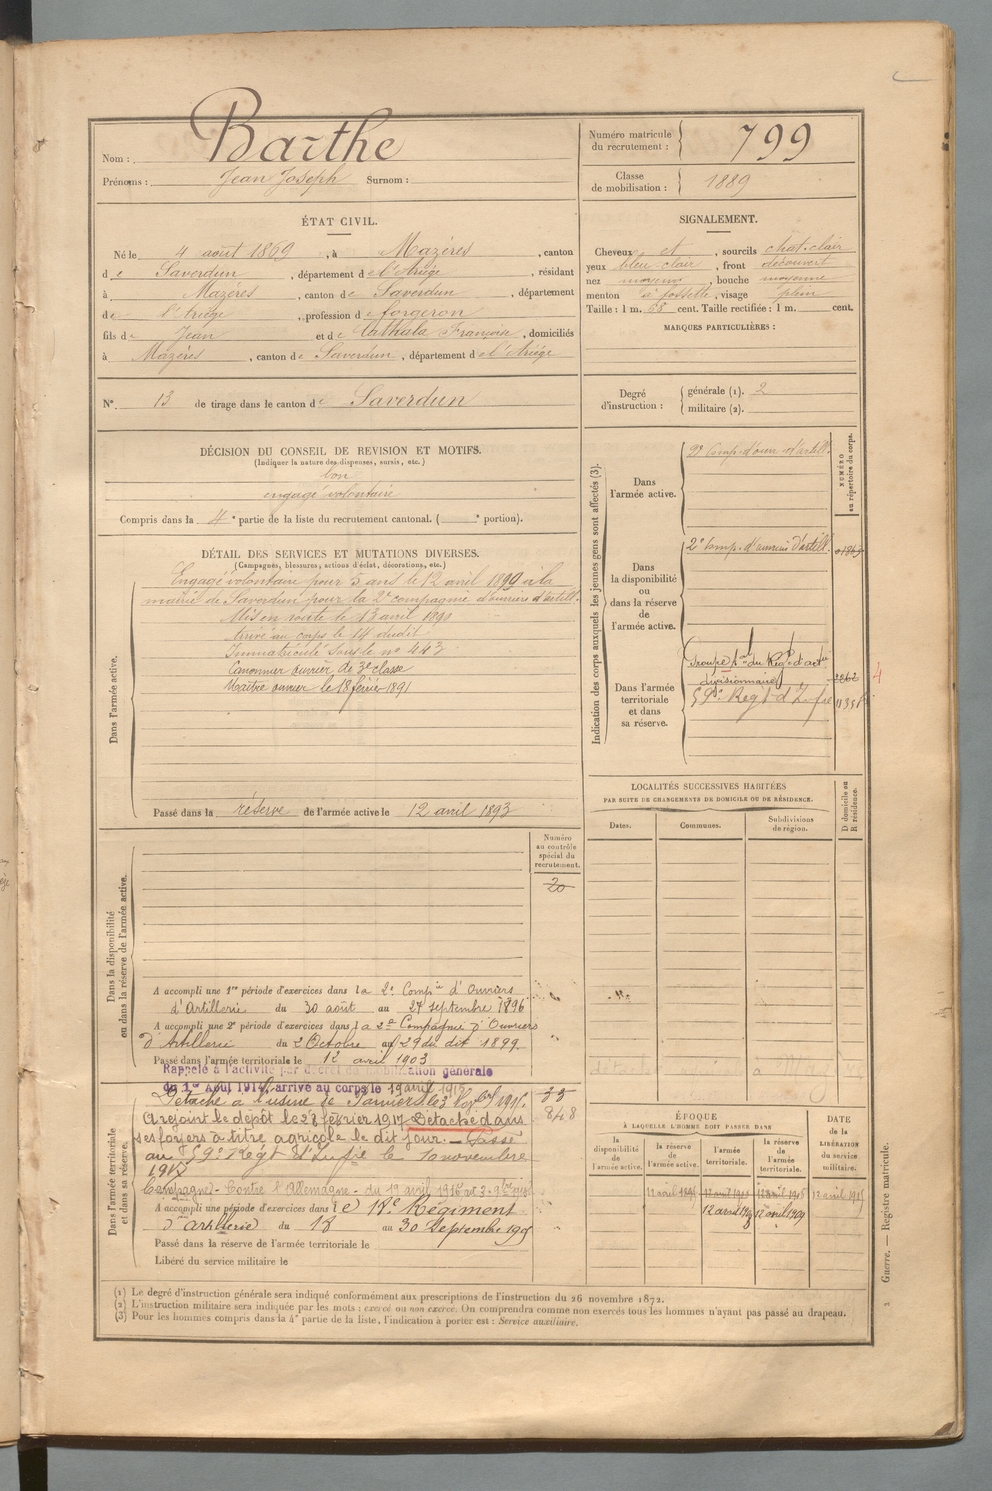 Nom : Barthe
Prénoms : Jean Joseph Surnom :
Numéro matricule du recrutement : 799
Classe de mobilisation : 1889
ÉTAT CIVIL.
Né le 4 août 1869, à Mazères, canton
de Saverdun, département de l'Ariège, résidant
à Mazères, canton de Saverdun, département
de l'Ariège, profession de forgeron
fils de Jean et de Cathala Françoise, domiciliés
à Mazères, canton de Saverdun, département de l'Ariège
SIGNALEMENT.
Cheveux et, sourcils chat. clair
yeux bleu clair, front découvert
nez moyen, bouche moyenne
menton à fossette, visage plein
Taille : 1 m. 68 cent. Taille rectifiée : 1 m. cent.
MARQUES PARTICULIÈRES :
N° 13 de tirage dans le canton de Saverdun
Degré d'instruction : générale (1). 2
militaire (2).
DÉCISION DU CONSEIL DE REVISION ET MOTIFS.
(Indiquer la nature des dispenses, sursis, etc.)
bon
engagé volontaire
Compris dans la 4e partie de la liste du recrutement cantonal. ( e portion).
DÉTAIL DES SERVICES ET MUTATIONS DIVERSES.
(Campagnes, blessures, actions d'éclat, décorations, etc.)
Dans l'armée active.
Engagé volontaire pour 3 ans le 12 avril 1890 à la
mairie de Saverdun pour la 2e compagnie d'ouvriers d'artill.
Mis en route le 13 avril 1890
Arrivé au corps le 14 dudit
Immatriculé sous le n° 443
Canonnier ouvrier de 3e classe
Maître ouvrier le 18 février 1891
Passé dans la réserve de l'armée active le 12 avril 1893
Indication des corps auxquels les jeunes gens sont affectés (3).
NUMÉRO au répertoire du corps.
Dans l'armée active.
2e Comp. d'ouv. d'artill.
Dans la disponibilité ou dans la réserve de l'armée active.
2e Comp. d'ouvriers d'artill.
Dans l'armée territoriale et dans sa réserve.
Groupe du Régt d'artie
divisionnaire
59e Régt d'Infie
4
LOCALITÉS SUCCESSIVES HABITÉES
PAR SUITE DE CHANGEMENTS DE DOMICILE OU DE RÉSIDENCE.
Dates. Communes. Subdivisions de région. D domicile ou R résidence.
Dans la disponibilité ou dans la réserve de l'armée active.
Numéro au contrôle spécial du recrutement.
20
A accompli une 1re période d'exercices dans la 2e Compie d'Ouvriers
d'Artillerie du 30 août au 27 septembre 1896
A accompli une 2e période d'exercices dans la 2e Compagnie d'Ouvriers
d'Artillerie du 2 Octobre au 29 du dit 1899
Passé dans l'armée territoriale le 12 avril 1903
Rappelé à l'activité par décret de mobilisation générale
du 1er Août 1914, arrivé au corps le 19 avril
Dans l'armée territoriale et dans sa réserve.
Détaché à l'usine de
A rejoint le dépôt le 28 février 1917. Détaché dans
ses foyers à titre agricole le dit jour. — Passé
au 59e Régt d'Infie le 10 novembre
1917
Campagne - Contre l'Allemagne - du 19 avril
A accompli une période d'exercices dans le Régiment
d'artillerie du 18 au 30 Septembre
Passé dans la réserve de l'armée territoriale le
Libéré du service militaire le
ÉPOQUE
À LAQUELLE L'HOMME DOIT PASSER DANS
la disponibilité de l'armée active. la réserve de l'armée active. l'armée territoriale. la réserve de l'armée territoriale.
DATE de la LIBÉRATION du service militaire.
(1) Le degré d'instruction générale sera indiqué conformément aux prescriptions de l'instruction du 26 novembre 1872.
(2) L'instruction militaire sera indiquée par les mots : exercé ou non exercé. On comprendra comme non exercés tous les hommes n'ayant pas passé au drapeau.
(3) Pour les hommes compris dans la 4e partie de la liste, l'indication à porter est : Service auxiliaire.
Guerre. — Registre matricule.